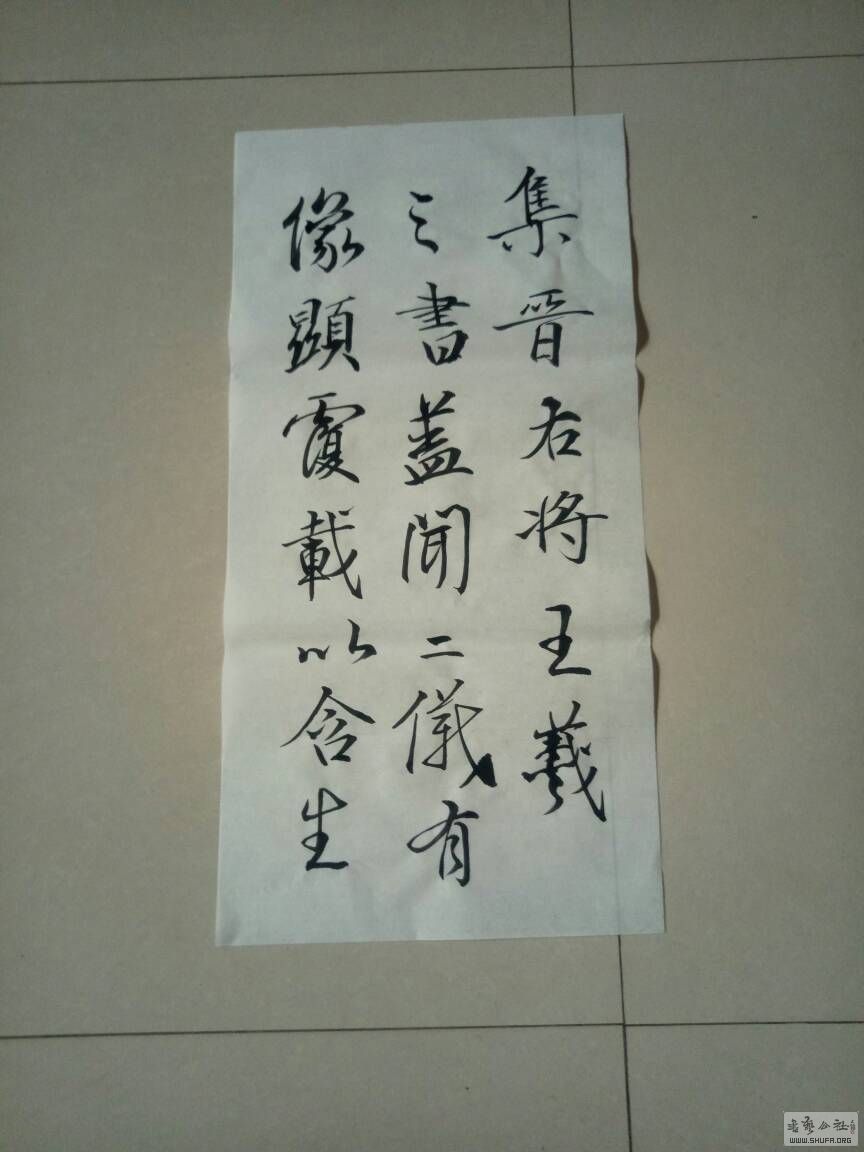 集晋右将王羲
之書蓋聞二儀有
像顯覆載以含生
書藝公社
WWW.SHUFA.ORG